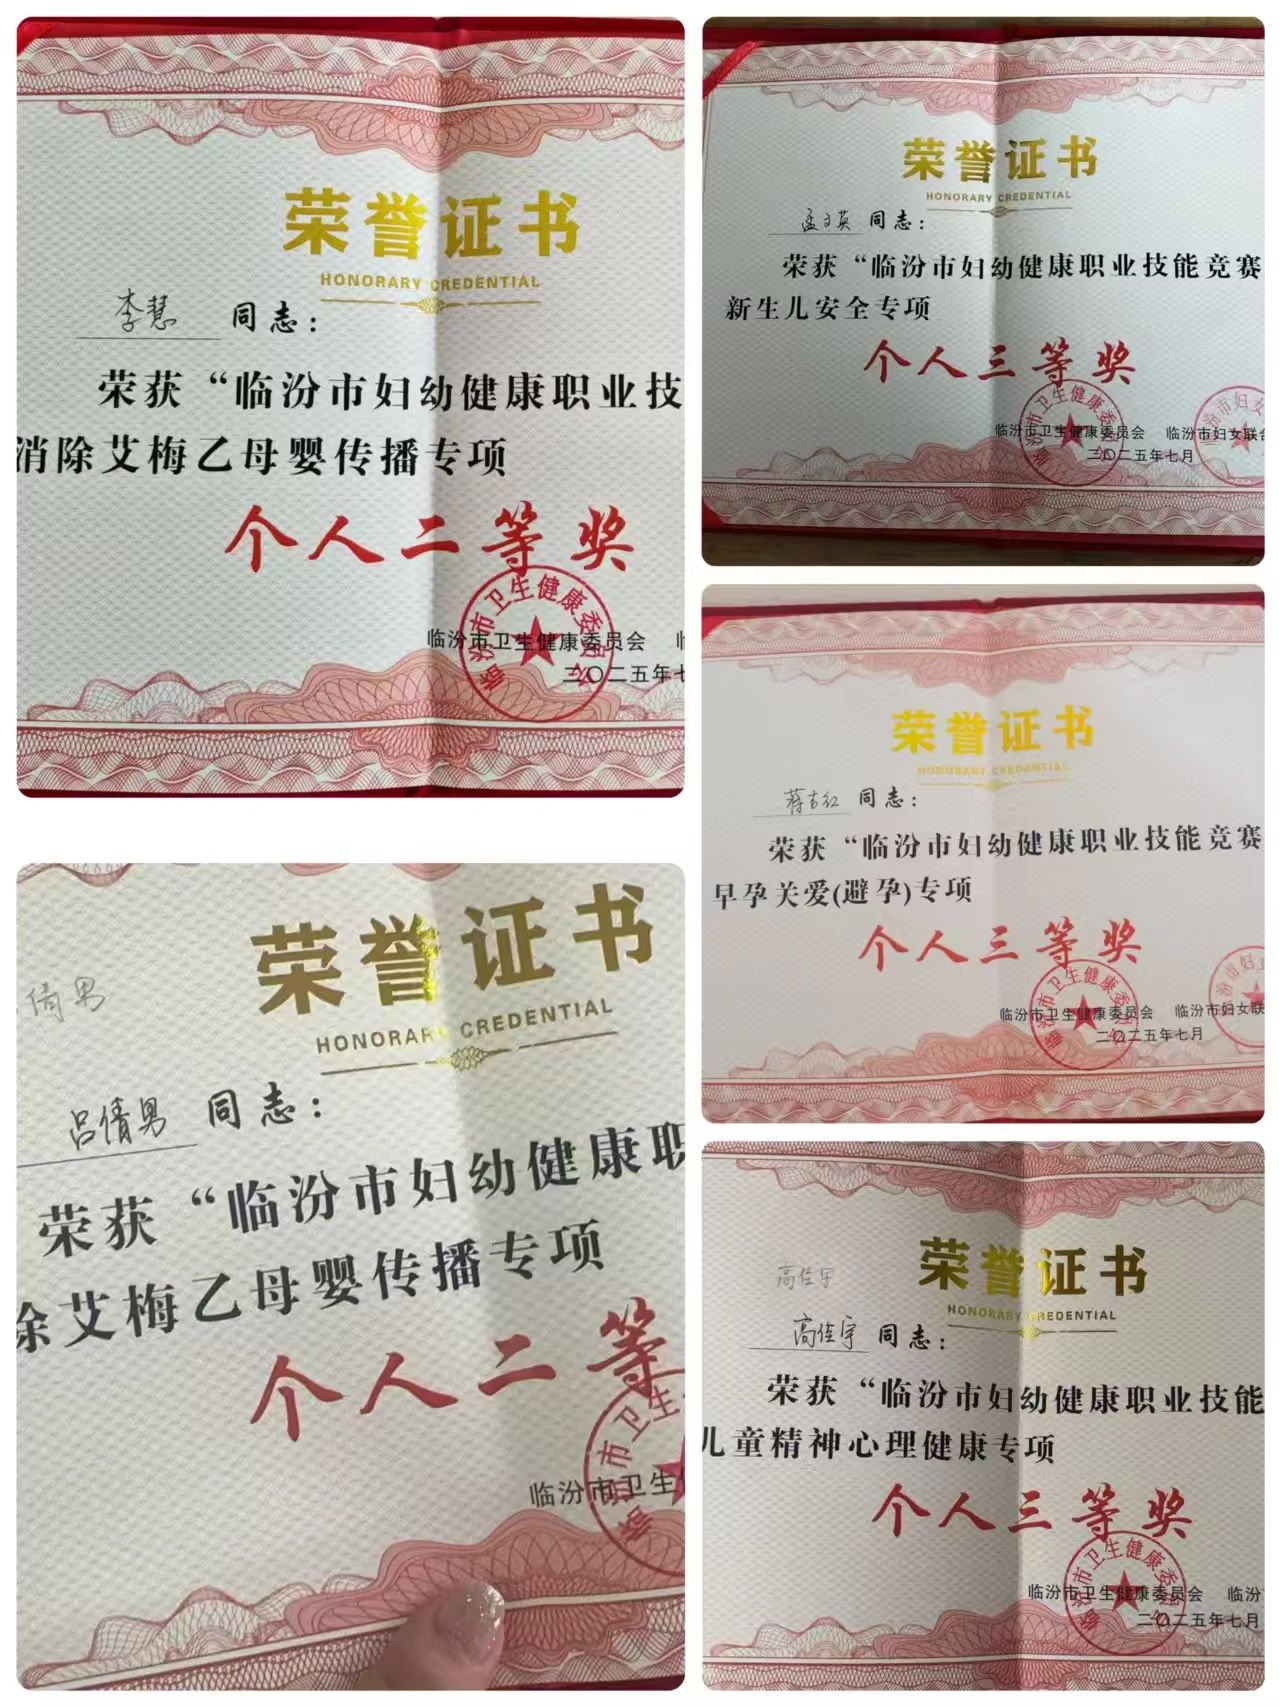 荣誉证书
HONORARY CREDENTIAL
李慧 同志：
荣获“临汾市妇幼健康职业技
消除艾梅乙母婴传播专项
个人二等奖
临汾市卫生健康委员会
临汾市卫生健康委员会
二〇二五年七
荣誉证书
HONORARY CREDENTIAL
孟文英 同志：
荣获“临汾市妇幼健康职业技能竞赛
新生儿安全专项
个人三等奖
临汾市卫生健康委员会
临汾市卫生健康委员会 临汾市妇女联合
临汾市妇女
二〇二五年七月
荣誉证书
HONORARY CREDENTIAL
蒋吉红 同志：
荣获“临汾市妇幼健康职业技能竞赛
早孕关爱(避孕)专项
个人三等奖
临汾市卫生健康委员会
临汾市卫生健康委员会 临汾市妇女联
二〇二五年七月
荣誉证书
HONORARY CREDENTIAL
倩男
吕倩男 同志：
荣获“临汾市妇幼健康职
除艾梅乙母婴传播专项
个人二等
临汾市卫生
临汾市卫生
荣誉证书
HONORARY CREDENTIAL
高佳宇
高佳宇 同志：
荣获“临汾市妇幼健康职业技能
儿童精神心理健康专项
个人三等奖
临汾市卫生健康委员会
临汾市卫生健康委员会 临汾
二〇二五年七月